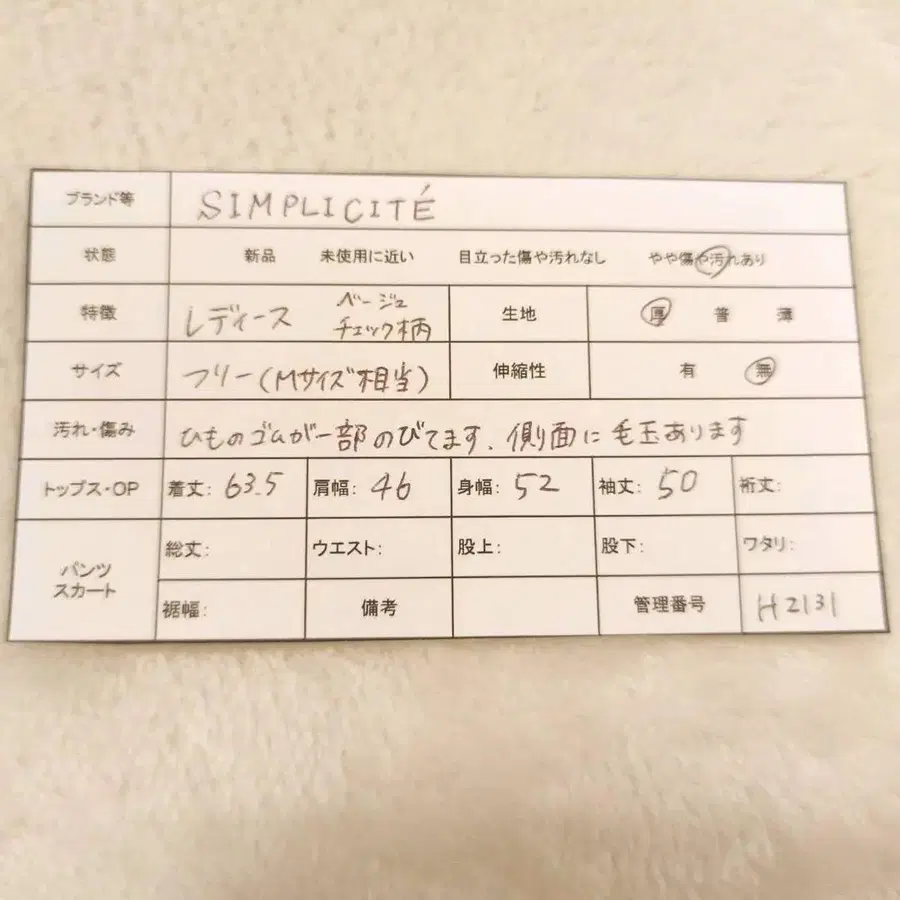 ブランド等 SIMPLICITÉ
状態 新品 未使用に近い 目立った傷や汚れなし やや傷や汚れあり
特徴 レディース ベージュ チェック柄 生地 厚 普 薄
サイズ フリー(Mサイズ相当) 伸縮性 有 無
汚れ・傷み ひものゴムが一部のびてます、側面に毛玉あります
トップス・OP 着丈: 63.5 肩幅: 46 身幅: 52 袖丈: 50 裄丈:
パンツ スカート 総丈: ウエスト: 股上: 股下: ワタリ:
裾幅: 備考 管理番号 H2131